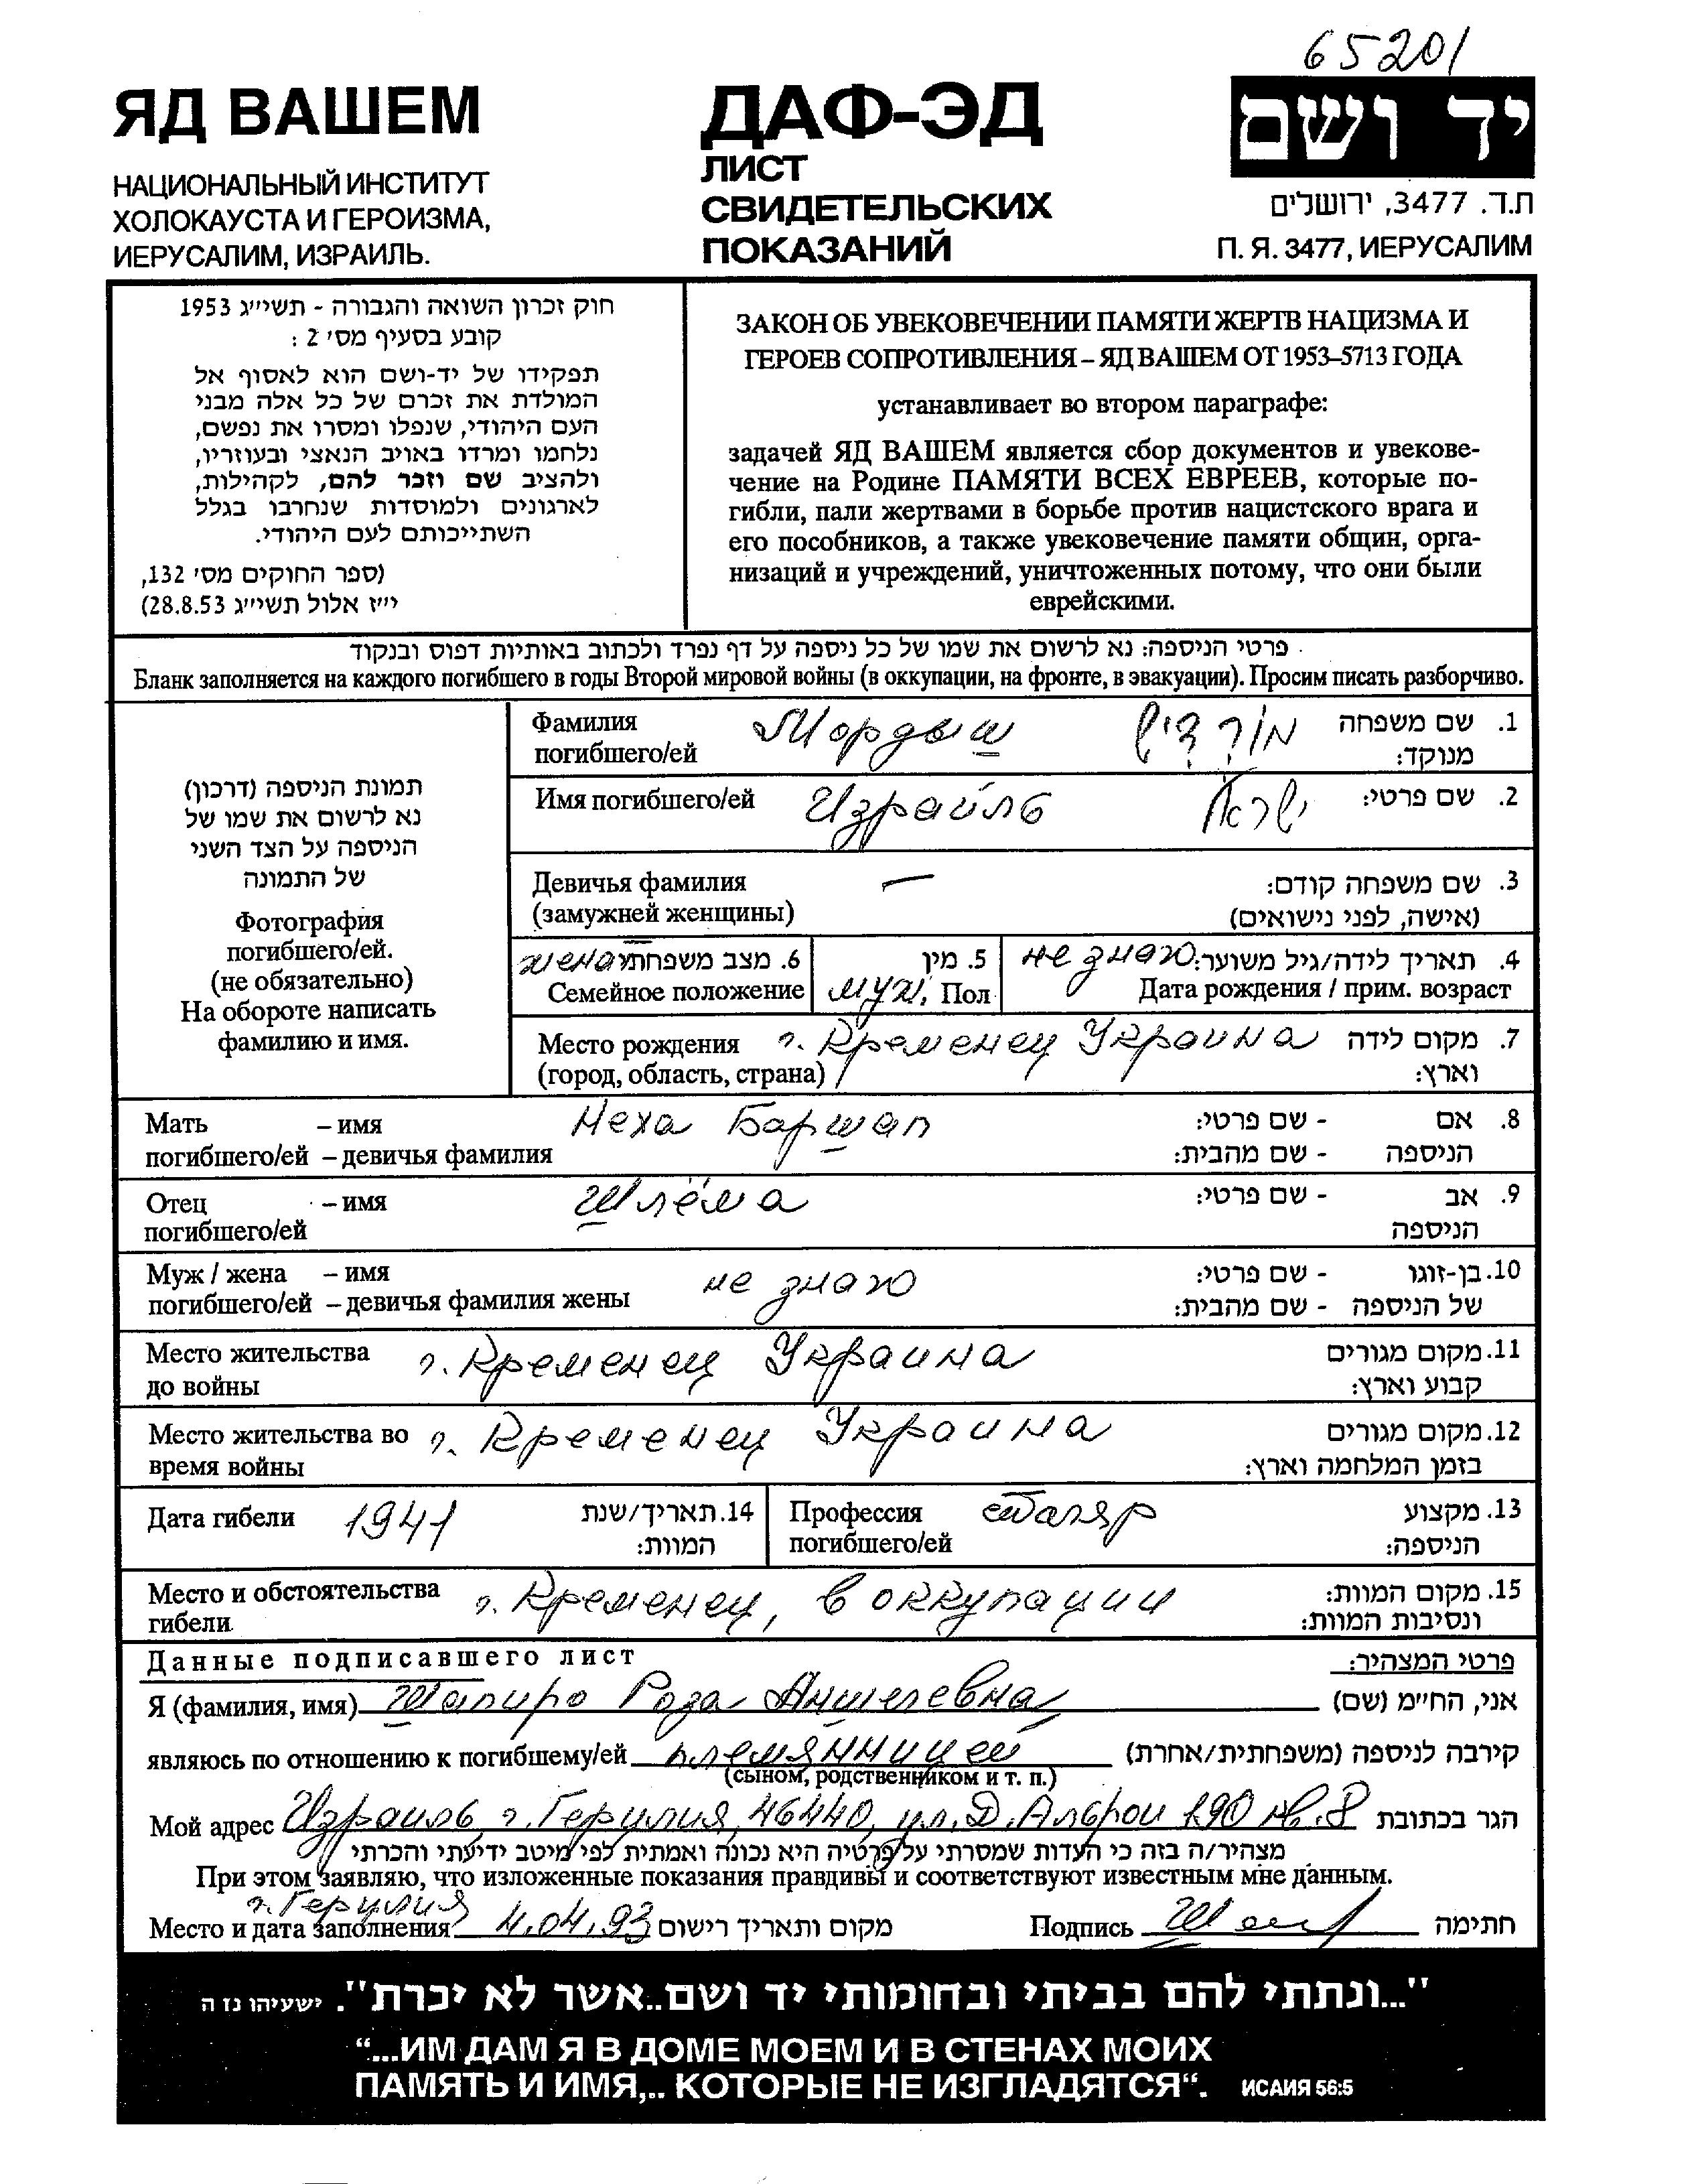 65201
ЯД ВАШЕМ
НАЦИОНАЛЬНЫЙ ИНСТИТУТ
ХОЛОКАУСТА И ГЕРОИЗМА,
ИЕРУСАЛИМ, ИЗРАИЛЬ.
ДАФ-ЭД
ЛИСТ
СВИДЕТЕЛЬСКИХ
ПОКАЗАНИЙ
יד ושם
ת.ד. 3477, ירושלים
П. Я. 3477, ИЕРУСАЛИМ
חוק זכרון השואה והגבורה - תשי״ג 1953
קובע בסעיף מס׳ 2 :
תפקידו של יד-ושם הוא לאסוף אל
המולדת את זכרם של כל אלה מבני
העם היהודי, שנפלו ומסרו את נפשם,
נלחמו ומרדו באויב הנאצי ובעוזריו,
ולהציב שם וזכר להם, לקהילות,
לארגונים ולמוסדות שנחרבו בגלל
השתייכותם לעם היהודי.
(ספר החוקים מס׳ 132,
י״ז אלול תשי״ג 28.8.53)
ЗАКОН ОБ УВЕКОВЕЧЕНИИ ПАМЯТИ ЖЕРТВ НАЦИЗМА И
ГЕРОЕВ СОПРОТИВЛЕНИЯ – ЯД ВАШЕМ ОТ 1953–5713 ГОДА
устанавливает во втором параграфе:
задачей ЯД ВАШЕМ является сбор документов и увекове-
чение на Родине ПАМЯТИ ВСЕХ ЕВРЕЕВ, которые по-
гибли, пали жертвами в борьбе против нацистского врага и
его пособников, а также увековечение памяти общин, орга-
низаций и учреждений, уничтоженных потому, что они были
еврейскими.
פרטי הניספה: נא לרשום את שמו של כל ניספה על דף נפרד ולכתוב באותיות דפוס ובנקוד
Бланк заполняется на каждого погибшего в годы Второй мировой войны (в оккупации, на фронте, в эвакуации). Просим писать разборчиво.
תמונת הניספה (דרכון)
נא לרשום את שמו של
הניספה על הצד השני
של התמונה
Фотография
погибшего/ей.
(не обязательно)
На обороте написать
фамилию и имя.
Фамилия Мордыш מורדיש 1. שם משפחה
погибшего/ей מנוקד:
Имя погибшего/ей Израйль ישראל 2. שם פרטי:
Девичья фамилия — 3. שם משפחה קודם:
(замужней женщины) (אישה, לפני נישואים)
женат 6. מצב משפחתי
Семейное положение
5. מין
муж. Пол
не знаю 4. תאריך לידה/גיל משוער:
Дата рождения / прим. возраст
Место рождения г. Кременец Украина 7. מקום לידה
(город, область, страна) וארץ:
Мать – имя Неха Баршап 8. אם - שם פרטי:
погибшего/ей – девичья фамилия הניספה - שם מהבית:
Отец – имя Шлёма 9. אב - שם פרטי:
погибшего/ей הניספה
Муж / жена – имя не знаю 10. בן-זוגו - שם פרטי:
погибшего/ей – девичья фамилия жены של הניספה - שם מהבית:
Место жительства г. Кременец Украина 11. מקום מגורים
до войны קבוע וארץ:
Место жительства во г. Кременец Украина 12. מקום מגורים
время войны בזמן המלחמה וארץ:
Дата гибели 1941 14. תאריך/שנת
המוות:
Профессия столяр 13. מקצוע
погибшего/ей הניספה:
Место и обстоятельства г. Кременец, в оккупации 15. מקום המוות:
гибели ונסיבות המוות:
Данные подписавшего лист פרטי המצהיר:
Я (фамилия, имя) Шапиро Роза Аншелевна אני, הח״מ (שם)
являюсь по отношению к погибшему/ей племянницей קירבה לניספה (משפחתית/אחרת)
(сыном, родственником и т. п.)
Мой адрес Израиль г. Герцлия, 46440, ул. Д. Алброи 190 кв. 8 הגר בכתובת
מצהיר/ה בזה כי העדות שמסרתי על פרטיה היא נכונה ואמתית לפי מיטב ידיעתי והכרתי
При этом заявляю, что изложенные показания правдивы и соответствуют известным мне данным.
г. Герцлия
Место и дата заполнения 4.04.93 מקום ותאריך רישום Подпись Шап חתימה
"...ונתתי להם בביתי ובחומותי יד ושם..אשר לא יכרת". ישעיהו נז ה
“...ИМ ДАМ Я В ДОМЕ МОЕМ И В СТЕНАХ МОИХ
ПАМЯТЬ И ИМЯ,.. КОТОРЫЕ НЕ ИЗГЛАДЯТСЯ“. ИСАИЯ 56:5